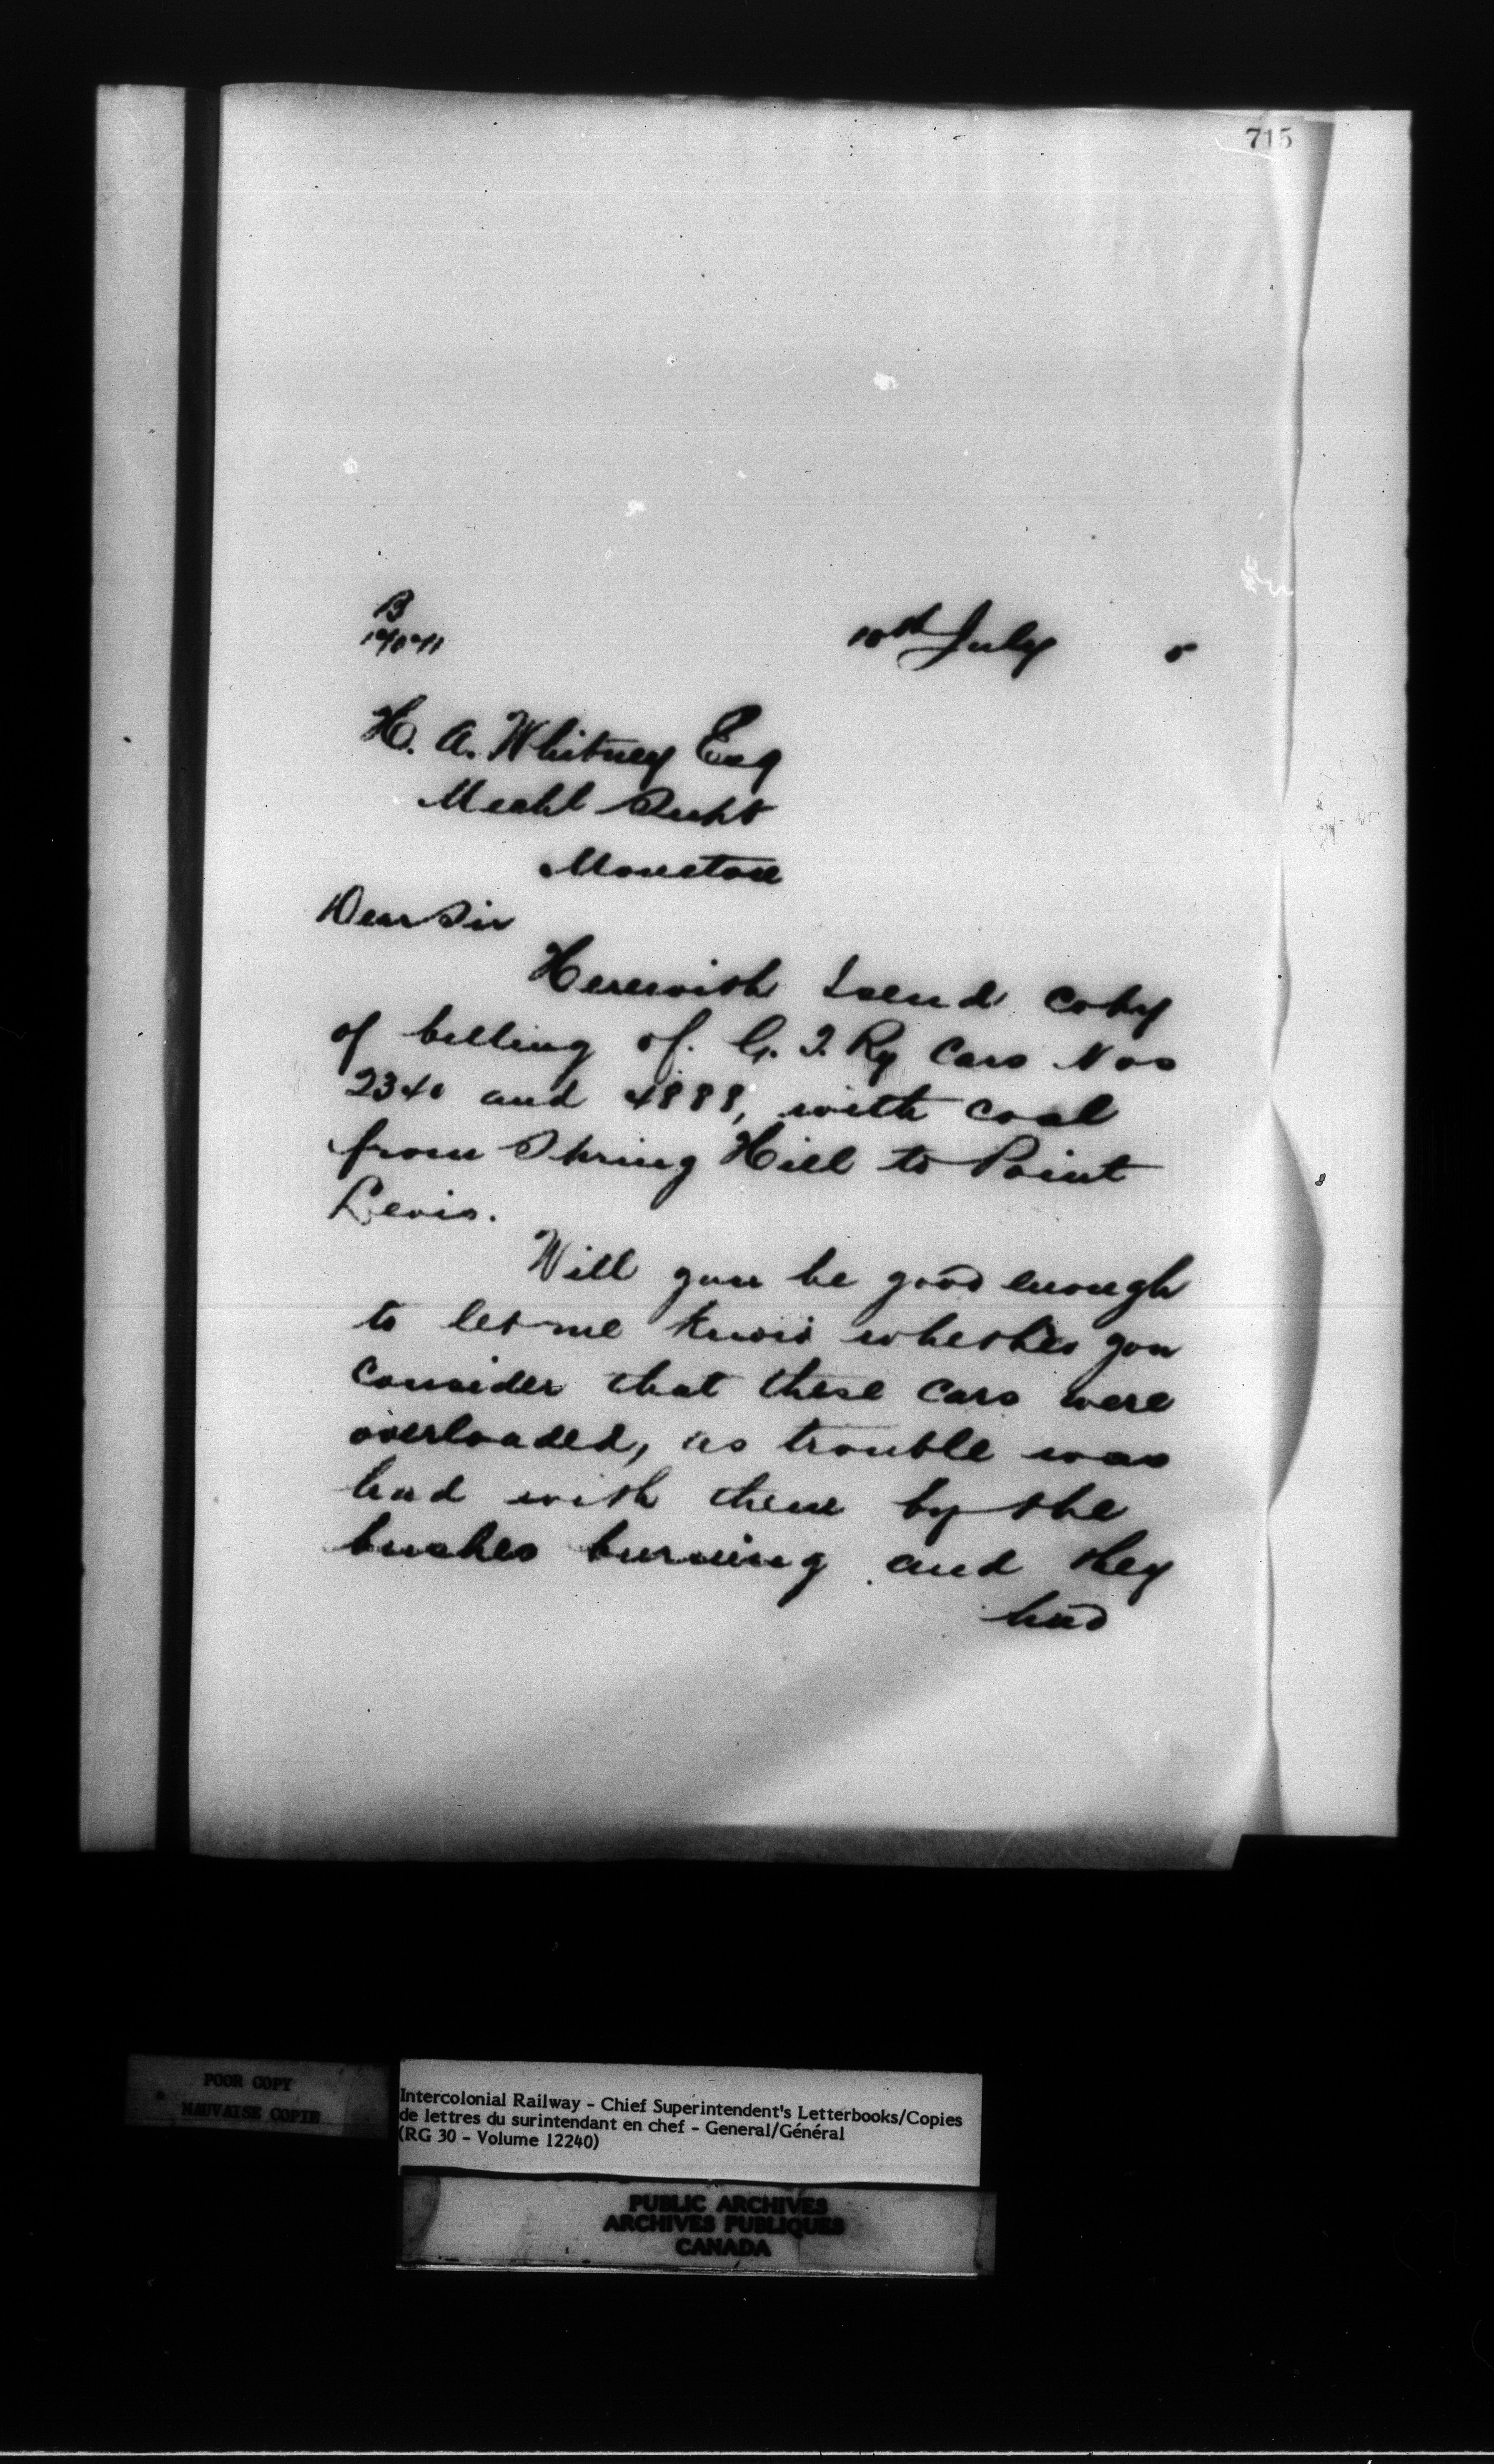 715
B
10th July 5
H. A. Whitney Esq
Mechl Supt
Moncton
Dear Sir
Herewith I send copy
of billing of G. T. Ry Cars Nos
2340 and 4888, with coal
from Spring Hill to Point
Levis.
Will you be good enough
to let me know whether you
consider that these cars were
overloaded, as trouble was
had with them by the
bushes burning and they
had
POOR COPY
MAUVAISE COPIE
Intercolonial Railway - Chief Superintendent's Letterbooks/Copies
de lettres du surintendant en chef - General/Général
(RG 30 - Volume 12240)
PUBLIC ARCHIVES
ARCHIVES PUBLIQUES
CANADA